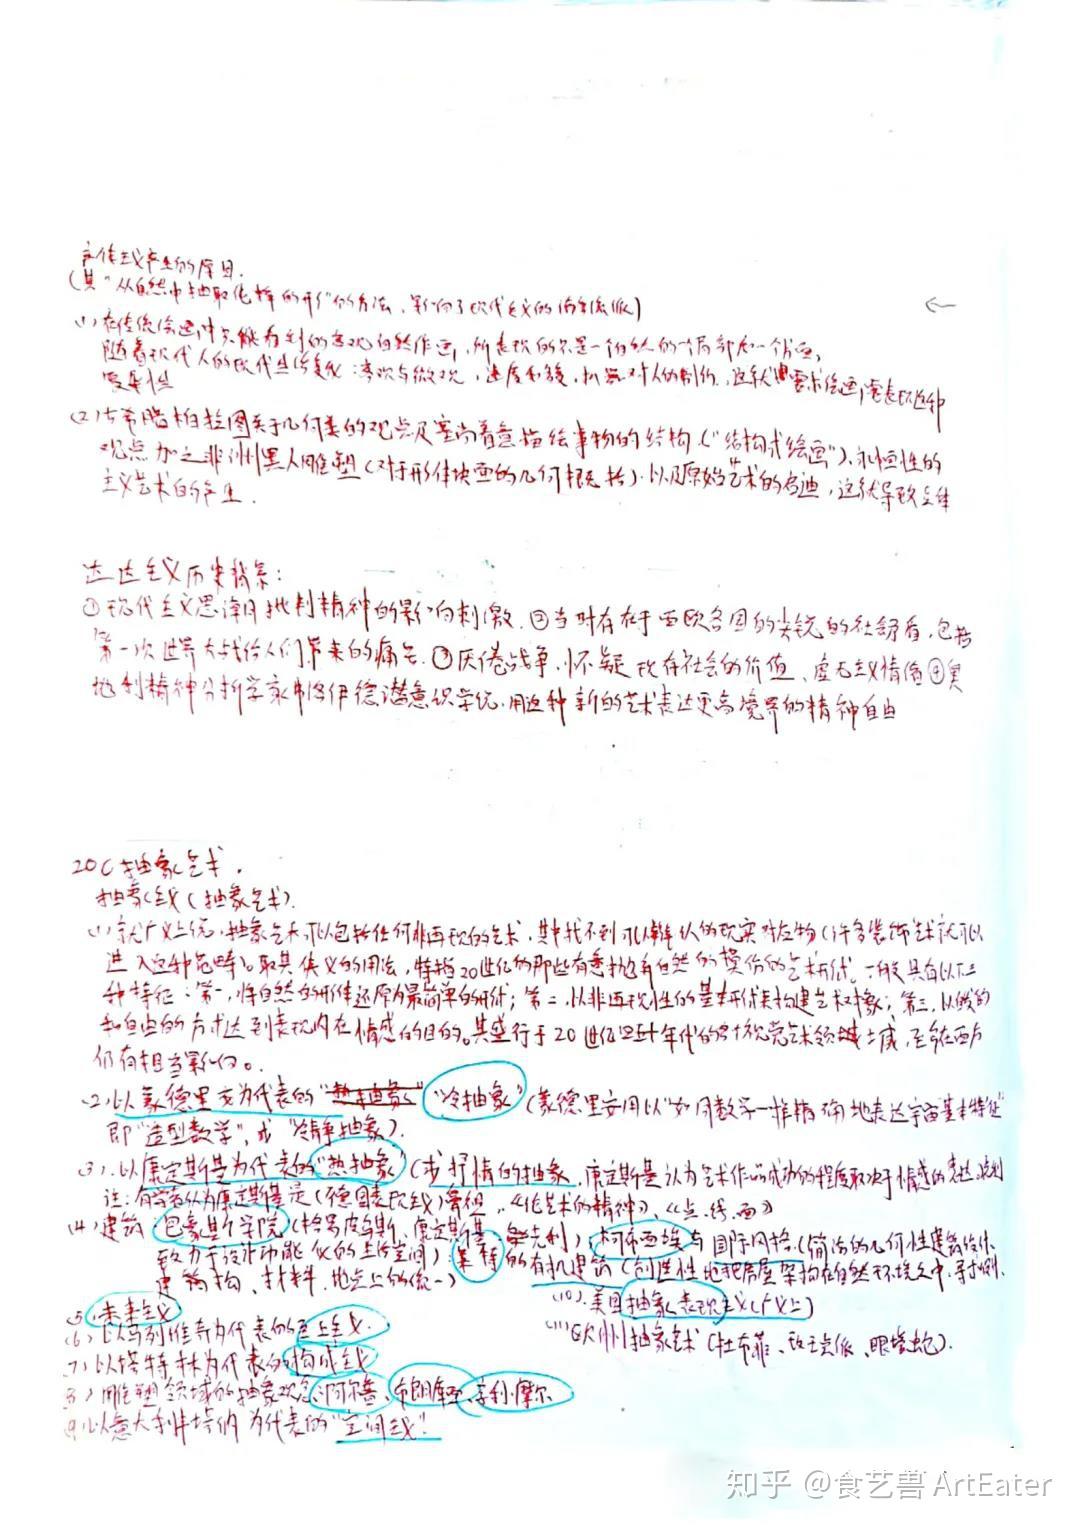 立体主义产生的原因.
(其"从自然中抽取化择的形"的方法、影响了现代主义的诸多流派)
(1) 在传统绘画中只能看到的客观自然作画，所表现的只是一个自然的一局部和一个方面，
随着现代人的现代生活变化：宏观与微观，速度和缓，机器对人的制约，这就要求绘画需表现这种
复杂性
(2) 古希腊柏拉图关于几何美的观点及塞尚着意描绘事物的结构("结构式绘画")、永恒性的
观点加之非洲黑人雕塑(对于形体块面的几何概括)、以及原始艺术的启迪，这就导致立体
主义艺术的产生.
达达主义历史背景：
①现代主义思潮及批判精神的影响刺激. ②当时存在于西欧各国的尖锐的社会矛盾，包括
第一次世界大战给人们带来的痛苦. ③厌倦战争，怀疑现存社会的价值、虚无主义情绪④奥
地利精神分析学家弗洛伊德潜意识学说，用这种新的艺术表达更高境界的精神自由
20C抽象艺术.
抽象主义(抽象艺术).
(1) 就广义上说，抽象艺术可以包括任何非再现的艺术，其中找不到可以辨认的现实对应物(许多装饰艺术就可以
进入这种范畴)。取其狭义的用法，特指20世纪的那些有意抛弃自然的模仿的艺术形式。一般具有以下三
种特征：第一，将自然的形体还原为最简单的形式；第二，以非再现性的基本形式来构建艺术对象；第三，以
和自由的方式达到表现内在情感的目的。其盛行于20世纪四五十年代的各个视觉艺术领域，至今在西方
仍有相当影响。
(2) 以蒙德里安为代表的"热抽象" "冷抽象" (蒙德里安用以"如同数学一样精确地表达宇宙基本特征"
即"造型数学"，或"冷静抽象").
(3) 以康定斯基为代表的"热抽象" (或抒情的抽象、康定斯基认为艺术作品成功的程度取决于情感的表达
注：有学者认为康定斯基是(德国表现主义)青骑、《论艺术的精神》、《点·线·面》
(4) 建筑 包豪斯学院(格罗皮乌斯、康定斯基、克利)；柯布西埃与国际风格.(简洁的几何性建筑设计、
致力于设计功能化的生活空间)；莱特的有机建筑(创造性地把房屋架构在自然环境之中，寻求
建筑构、材料、地点上的统一)
(5) 未来主义
(6) 以马列维奇为代表的至上主义.
(7) 以塔特林为代表的构成主义
(8) 雕塑领域的抽象观念：阿尔普、布朗库西、亨利·摩尔
(9) 以意大利丰塔纳为代表的"空间主义".
(10) 美国抽象表现主义(广义上)
(11) 欧洲抽象艺术(杜布菲、斑点派、眼镜蛇).
知乎 @食艺兽 ArtEater